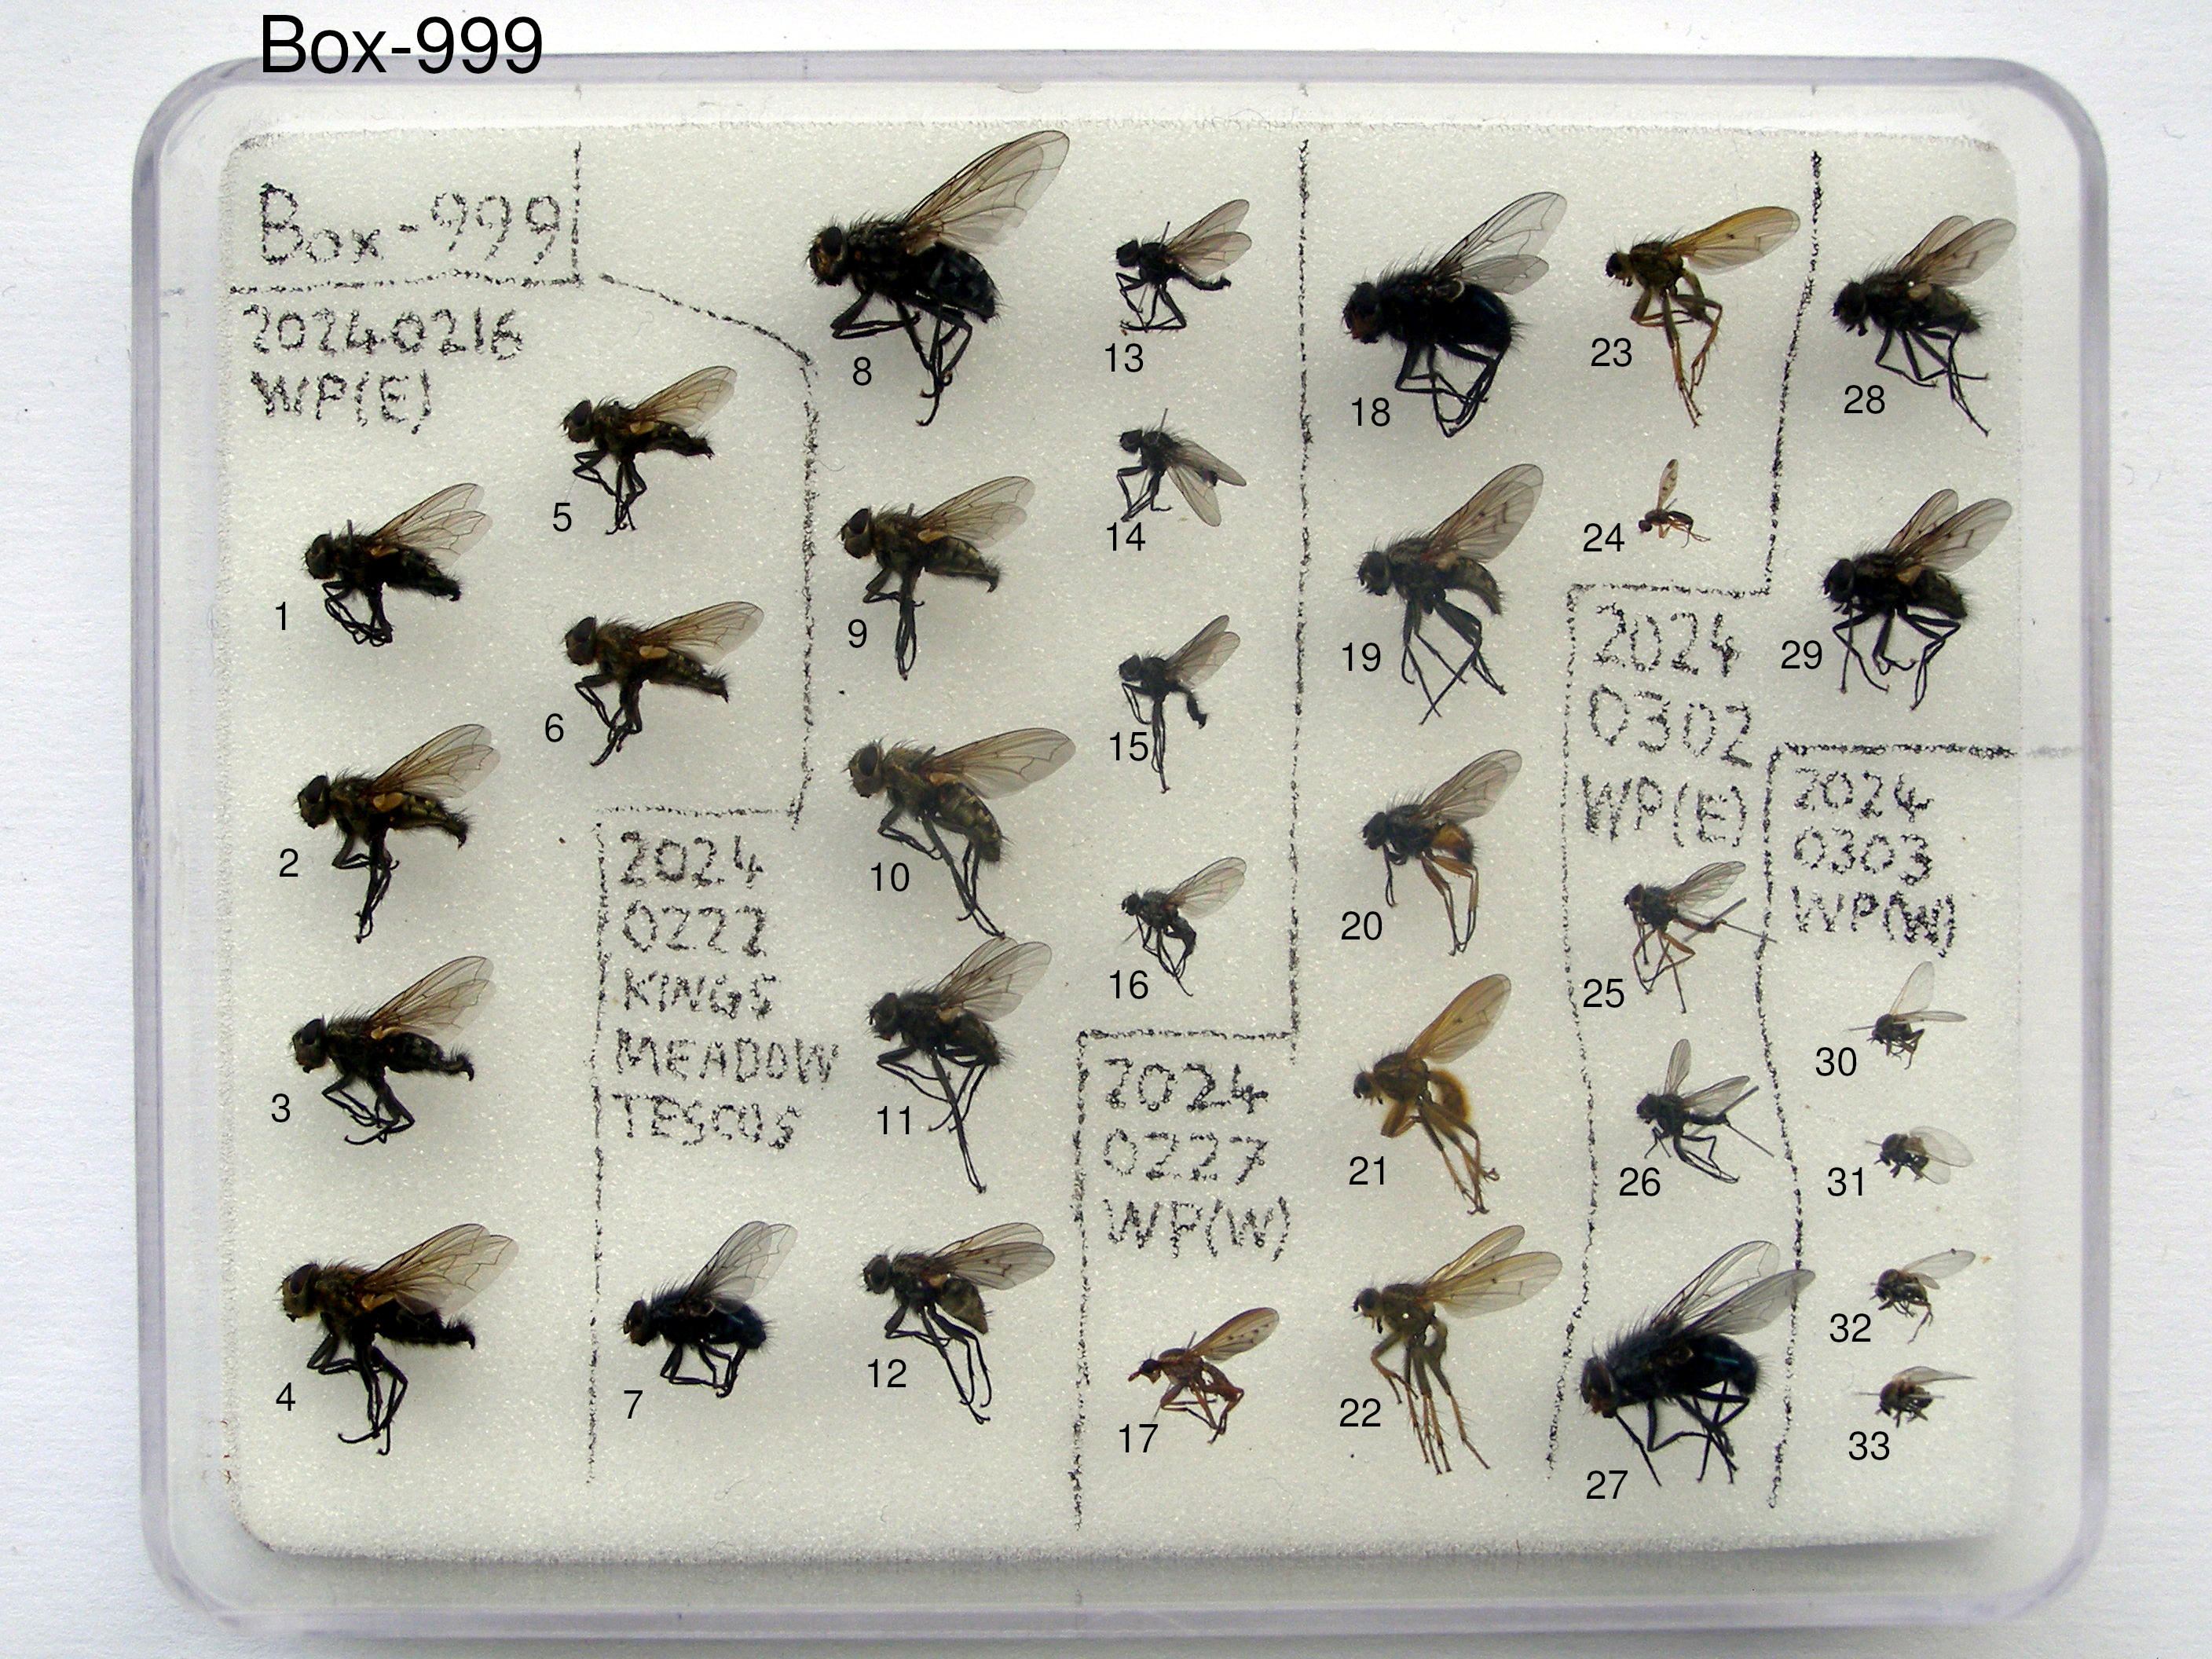 Box-999
Box-999
20240216
WP(E)
1
2
3
4
5
6
2024
0222
KINGS
MEADOW
TESCOS
7
8
9
10
11
12
13
14
15
16
2024
0227
WP(W)
17
18
19
20
21
22
23
24
2024
0302
WP(E)
25
26
27
28
29
2024
0303
WP(W)
30
31
32
33